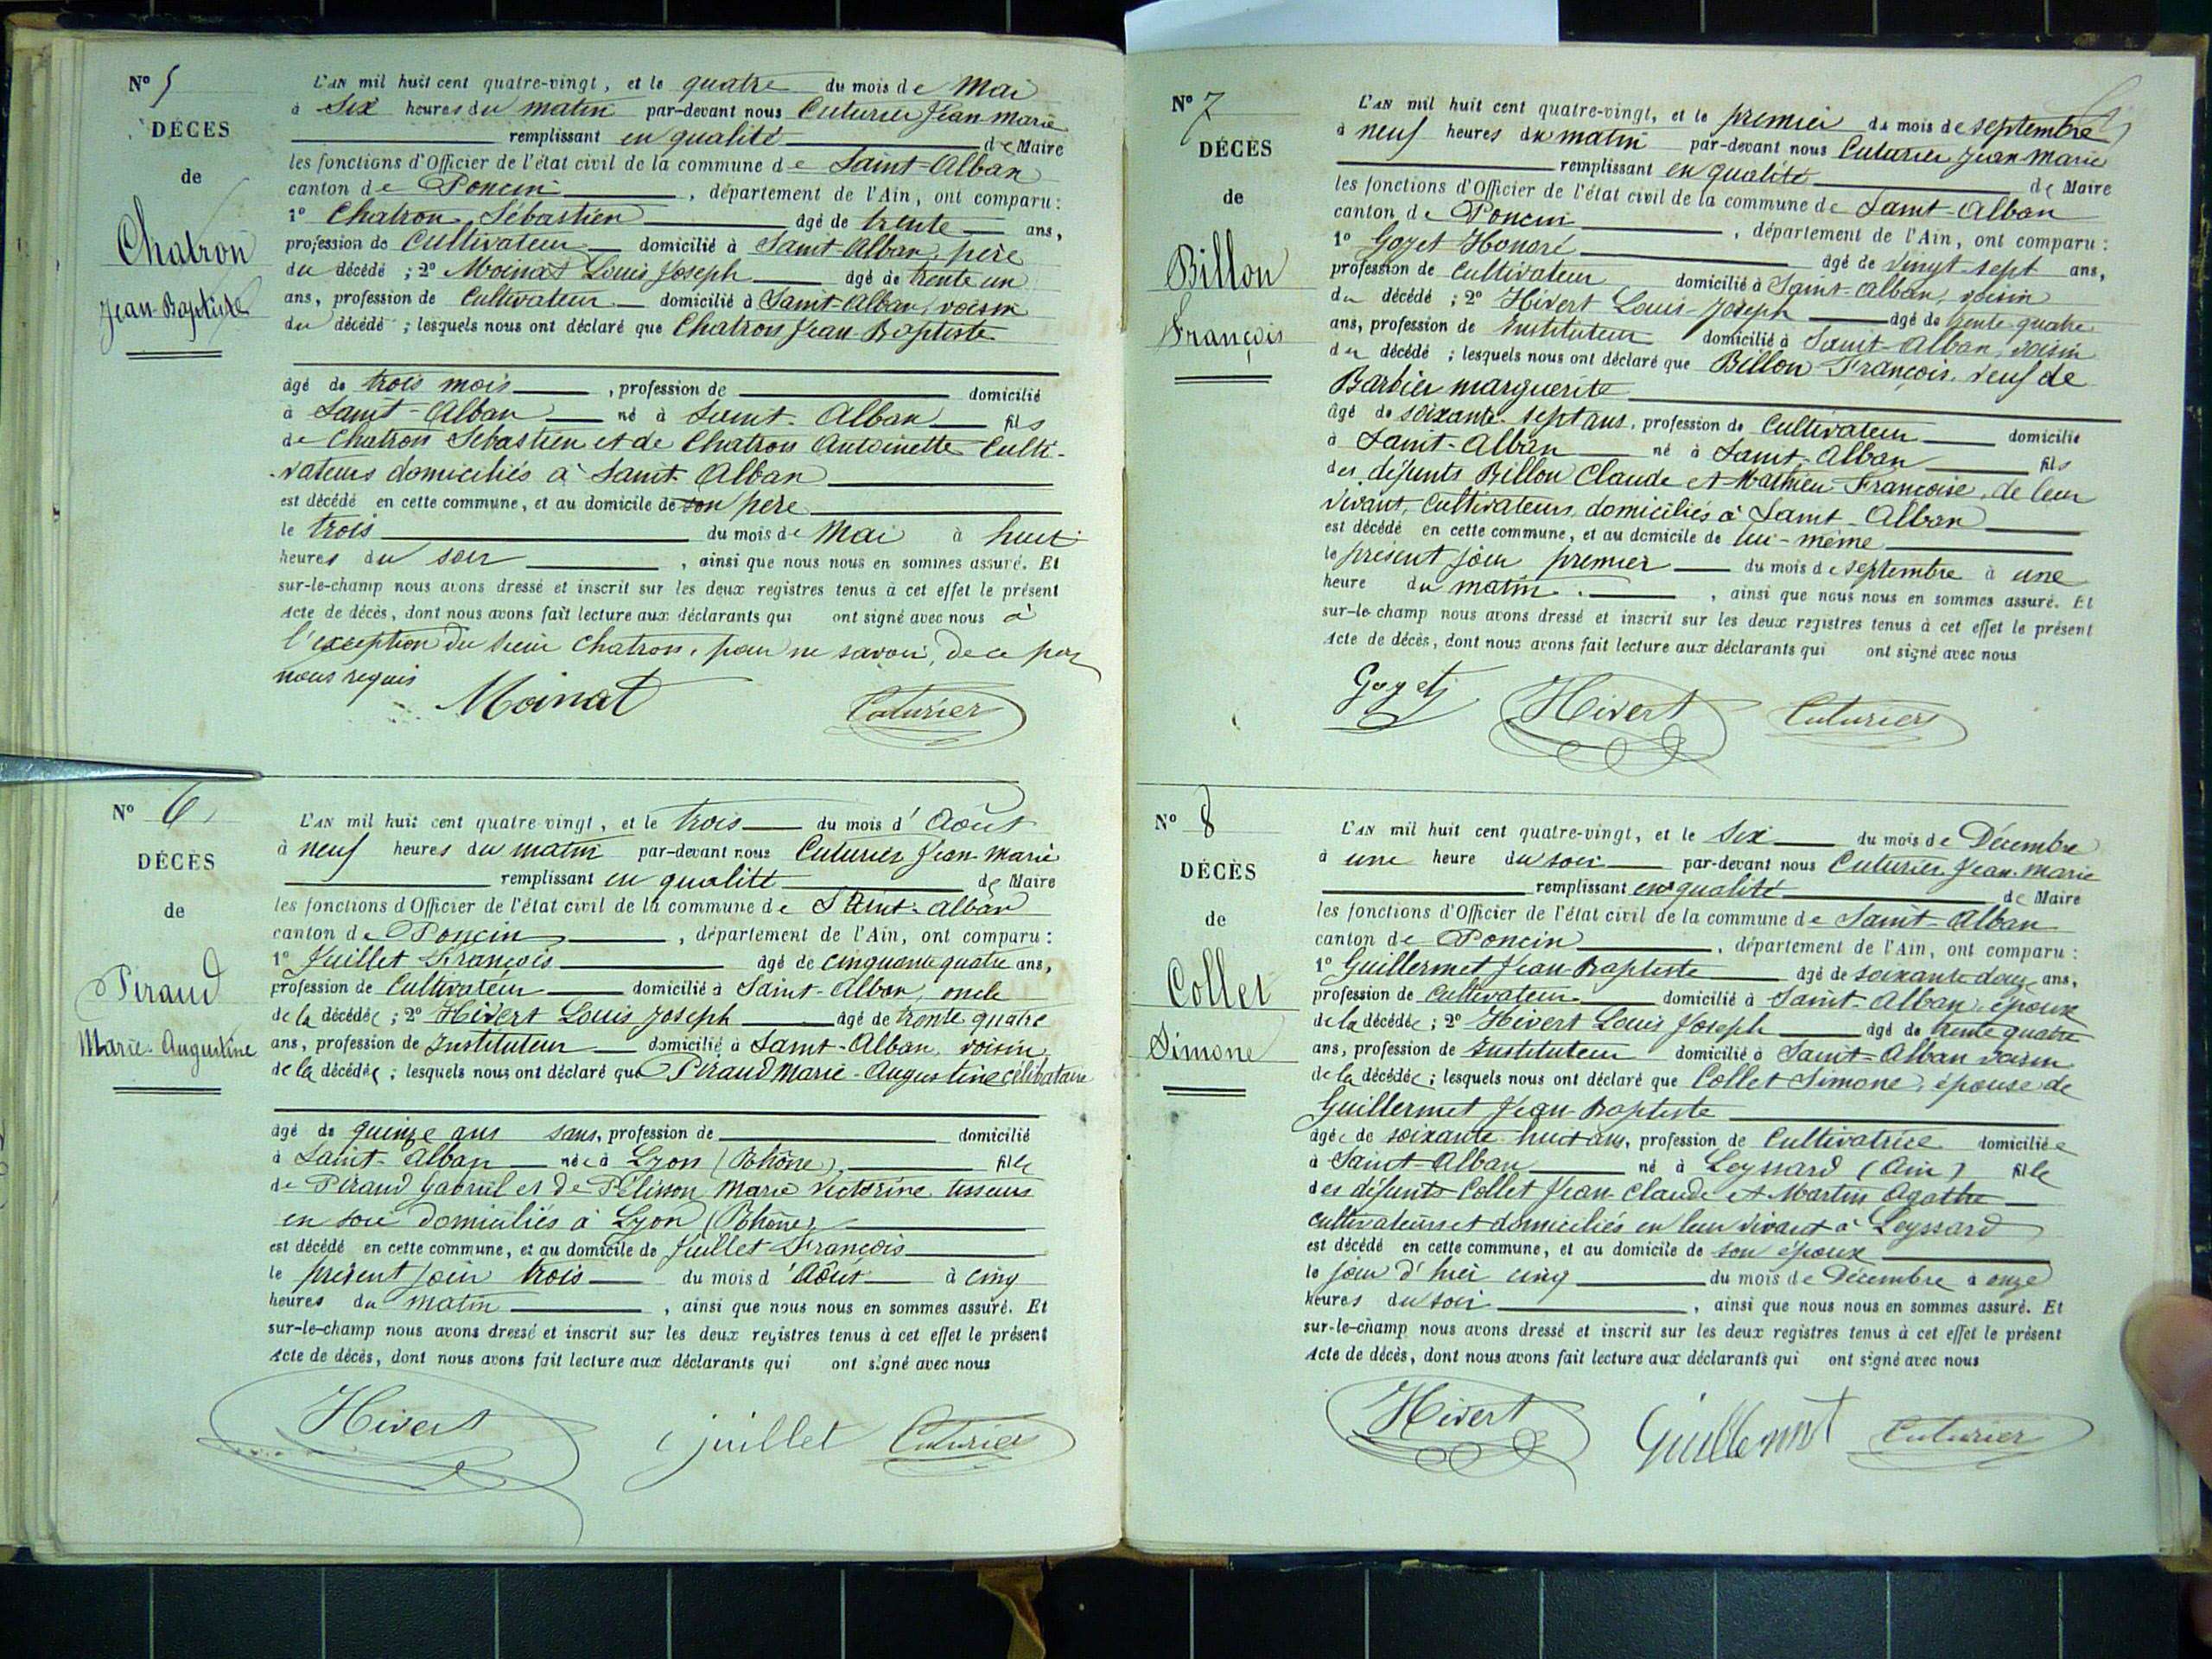 N° 5
DÉCÈS
de
Chatron
Jean-Baptiste
L'AN mil huit cent quatre-vingt, et le quatre du mois de Mai
à six heures du matin par-devant nous Cuturier Jean Marie
remplissant en qualité de Maire
les fonctions d'Officier de l'état civil de la commune de Saint-Alban
canton de Poncin, département de l'Ain, ont comparu :
1° Chatron Sébastien âgé de trente ans,
profession de Cultivateur domicilié à Saint-Alban, père
du décédé ; 2° Moinat Louis Joseph âgé de trente un
ans, profession de Cultivateur domicilié à Saint-Alban, voisin
du décédé ; lesquels nous ont déclaré que Chatron Jean Baptiste
âgé de trois mois, profession de domicilié
à Saint-Alban né à Saint-Alban fils
de Chatron Sébastien et de Chatron Antoinette Culti-
vateurs domiciliés à Saint-Alban
est décédé en cette commune, et au domicile de son père
le trois du mois de Mai à huit
heures du soir, ainsi que nous nous en sommes assuré. Et
sur-le-champ nous avons dressé et inscrit sur les deux registres tenus à cet effet le présent
Acte de décès, dont nous avons fait lecture aux déclarants qui ont signé avec nous à
l'exception du sieur Chatron, pour ne savoir, de ce par
nous requis
Moinat Cuturier
N° 6
DÉCÈS
de
Piraud
Marie-Augustine
L'AN mil huit cent quatre-vingt, et le trois du mois d'Août
à neuf heures du matin par-devant nous Cuturier Jean-Marie
remplissant en qualité de Maire
les fonctions d'Officier de l'état civil de la commune de Saint-Alban
canton de Poncin, département de l'Ain, ont comparu :
1° Juillet François âgé de cinquante quatre ans,
profession de Cultivateur domicilié à Saint-Alban, oncle
de la décédée ; 2° Hivert Louis Joseph âgé de trente quatre
ans, profession de Instituteur domicilié à Saint-Alban, voisin
de la décédée ; lesquels nous ont déclaré que Piraud Marie-Augustine célibataire
âgé de quinze ans sans, profession de domicilié
à Saint-Alban née à Lyon (Rhône), fille
de Piraud Gabriel et de Pélisson Marie Victorine tisseurs
en soie domiciliés à Lyon (Rhône)
est décédé en cette commune, et au domicile de Juillet François
le présent jour trois du mois d'Août à cinq
heures du matin, ainsi que nous nous en sommes assuré. Et
sur-le-champ nous avons dressé et inscrit sur les deux registres tenus à cet effet le présent
Acte de décès, dont nous avons fait lecture aux déclarants qui ont signé avec nous
Hivert juillet Cuturier
N° 7
DÉCÈS
de
Billon
François
L'AN mil huit cent quatre-vingt, et le premier du mois de septembre
à neuf heures du matin par-devant nous Cuturier Jean-Marie
remplissant en qualité de Maire
les fonctions d'Officier de l'état civil de la commune de Saint-Alban
canton de Poncin, département de l'Ain, ont comparu :
1° Goyet Honoré âgé de vingt-sept ans,
profession de Cultivateur domicilié à Saint-Alban, voisin
du décédé ; 2° Hivert Louis-Joseph âgé de trente quatre
ans, profession de Instituteur domicilié à Saint-Alban, voisin
du décédé ; lesquels nous ont déclaré que Billon François, veuf de
Barbier marguerite
âgé de soixante-sept ans, profession de Cultivateur domicilié
à Saint-Alban né à Saint-Alban fils
des défunts Billon Claude et Mathieu Françoise, de leur
vivant, Cultivateurs domiciliés à Saint-Alban
est décédé en cette commune, et au domicile de lui-même
le présent jour premier du mois de septembre à une
heure du matin, ainsi que nous nous en sommes assuré. Et
sur-le-champ nous avons dressé et inscrit sur les deux registres tenus à cet effet le présent
Acte de décès, dont nous avons fait lecture aux déclarants qui ont signé avec nous
Goyet Hivert Cuturier
N° 8
DÉCÈS
de
Collet
Simone
L'AN mil huit cent quatre-vingt, et le six du mois de Décembre
à une heure du soir par-devant nous Cuturier Jean-Marie
remplissant en qualité de Maire
les fonctions d'Officier de l'état civil de la commune de Saint-Alban
canton de Poncin, département de l'Ain, ont comparu :
1° Guillermet Jean-Baptiste âgé de soixante douze ans,
profession de Cultivateur domicilié à Saint-Alban, époux
de la décédée ; 2° Hivert Louis Joseph âgé de trente quatre
ans, profession de Instituteur domicilié à Saint-Alban voisin
de la décédée ; lesquels nous ont déclaré que Collet Simone, épouse de
Guillermet Jean-Baptiste
âgée de soixante-huit ans, profession de Cultivatrice domiciliée
à Saint-Alban né à Leyssard (Ain) fille
des défunts Collet Jean-Claude et Martin Agathe
cultivateurs et domiciliés en leur vivant à Leyssard
est décédé en cette commune, et au domicile de son époux
le jour d'hier cinq du mois de Décembre à onze
heures du soir, ainsi que nous nous en sommes assuré. Et
sur-le-champ nous avons dressé et inscrit sur les deux registres tenus à cet effet le présent
Acte de décès, dont nous avons fait lecture aux déclarants qui ont signé avec nous
Hivert Guillermet Cuturier